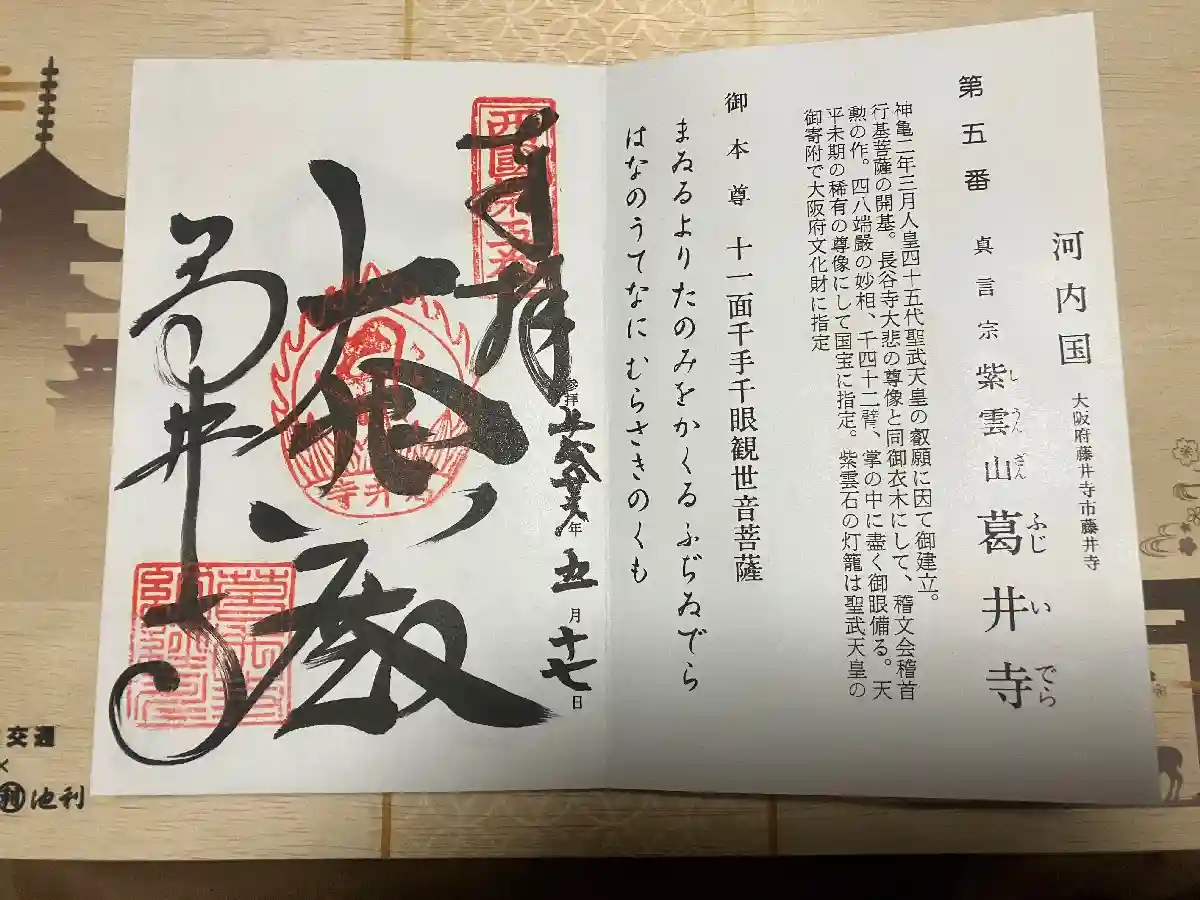 河内国 大阪府藤井寺市藤井寺
第五番 真言宗 紫雲山 葛井寺
しうんざん ふじいでら
神亀二年三月人皇四十五代聖武天皇の叡願に因て御建立。
行基菩薩の開基。長谷寺大悲の尊像と同御衣木にして、稽文会稽首
勲の作。四八端厳の妙相、千四十二臂、掌の中に盡く御眼備る。天
平未期の稀有の尊像にして国宝に指定。紫雲石の灯籠は聖武天皇の
御寄附で大阪府文化財に指定
御本尊 十一面千手千眼観世音菩薩
まゐるよりたのみをかくるふぢゐでら
はなのうてなにむらさきのくも
西國第五番
奉拝
参拝 年五月十七日
大悲殿
葛井寺
葛井寺
交通
×
池利